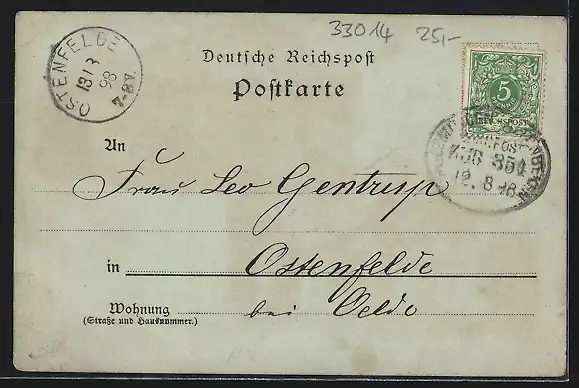 33014 25,-
OSTENFELDE
13/8
98
7-8V.
Deutsche Reichspost
Postkarte
5
REICHSPOST
BAHNPOST
ZUG 351
12. 8 98
An
Frau Leo Gentrup
in Ostenfelde
Wohnung bei Oelde
(Straße und Hausnummer.)